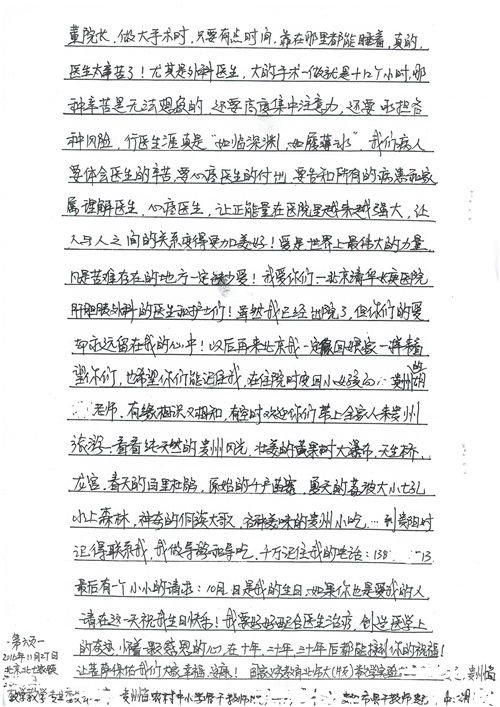 董院长,做大手术时,只要有点时间,靠在哪里都能睡着,真的,
医生太辛苦了!尤其是外科医生,大的手术一做就是十12个小时,那
种辛苦是无法想象的,还要高度集中注意力,还要承担各
种风险,行医生涯真是“如临深渊,如履薄冰”,我们病人
要体会医生的辛苦,要心疼医生的付出,要告知所有的病患和家
属理解医生,心疼医生,让正能量在医院里越来越强大,让
人与人之间的关系变得更加美好!爱是世界上最伟大的力量,
凡是苦难存在的地方一定缺少爱!我爱你们——北京清华长庚医院
肝胆胰外科的医生和护士们!虽然我已经出院了,但你们的爱
却永远留在我的心中!以后再来北京我一定像回娘家一样来看
望你们,也希望你们能记住我,在住院时变回小女孩的 贵州胡
老师,有缘相识又相知,有空时欢迎你们带上全家人来贵州
旅游,看看纯天然的贵州风光,壮美的黄果树大瀑布,天生桥、
龙宫,春天的百里杜鹃,原始的千户苗寨,夏天的荔波大小七孔
水上森林,神奇的侗族大歌,各种美味的贵州小吃,…到贵阳时
记得联系我,我做导游和导吃,千万记住我的电话:138 13
最后有一个小小的请求:10月 日是我的生日,如果你也是爱我的人
请在这一天祝我生日快乐!我要好好配合医生治疗,创造医学上
的奇迹,怀着最感恩的心,在十年、二十年、三十年后都能接到你的祝福!
让菩萨保佑我们大家幸福、安康!
第六页
2016年11月27日